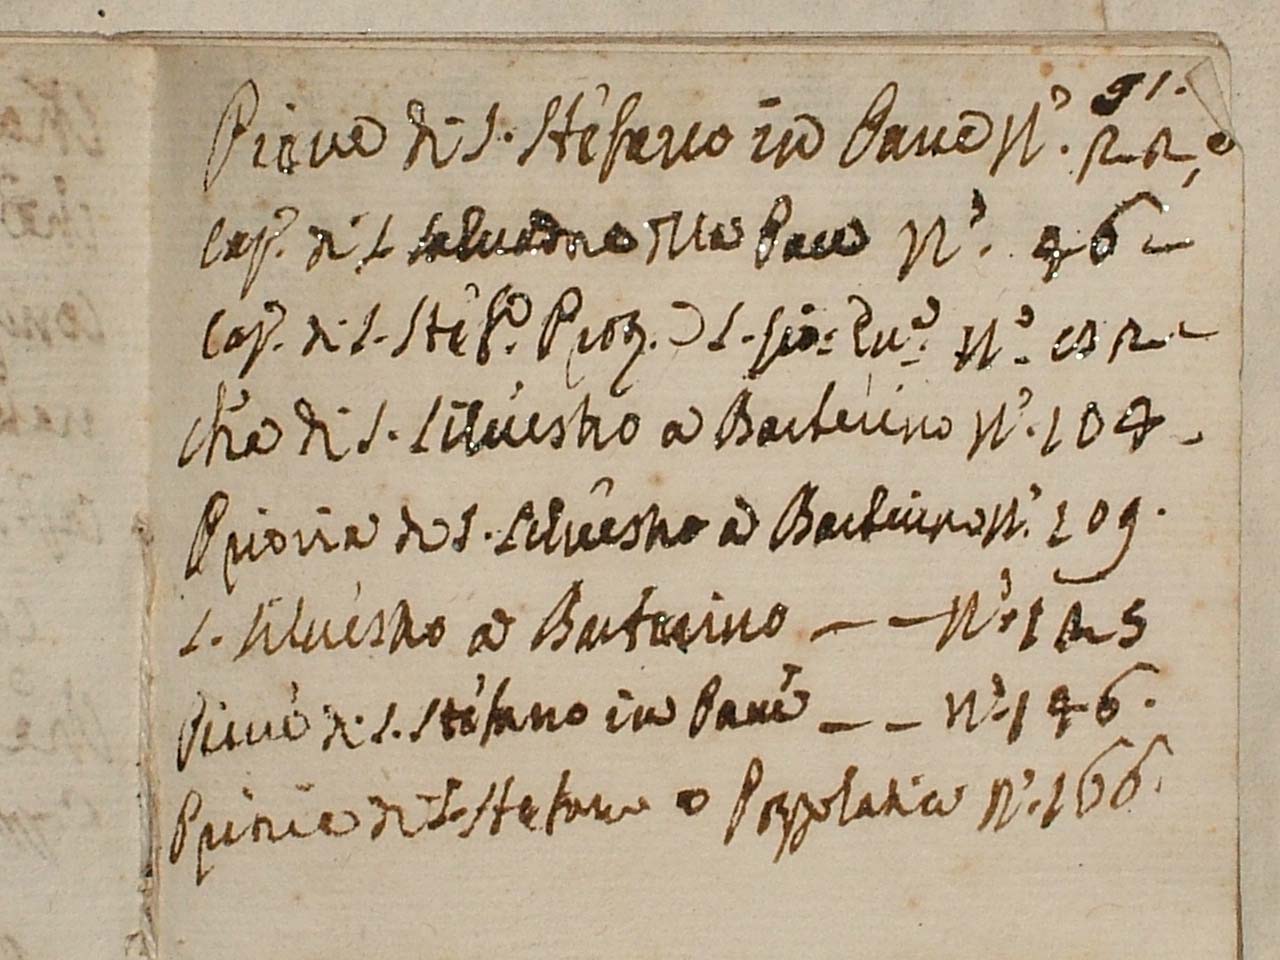 91.
Pieve di S. Stefano in Pane N.° 22,
Cap. di S. Salvadore della Pace N.° 46
Cap. di S. Stef.° S. Gio: Ev.a N.°
Ch.a di S. Silvestro a Barberino N.° 104
Prioria di S. Silvestro a Barberino N.° 109.
S. Silvestro a Barberino — — N.° 125
Pieve di S. Stefano in Pane — — N.° 146.
Prioria di S. Stefano a Pozzolatico N.° 166.